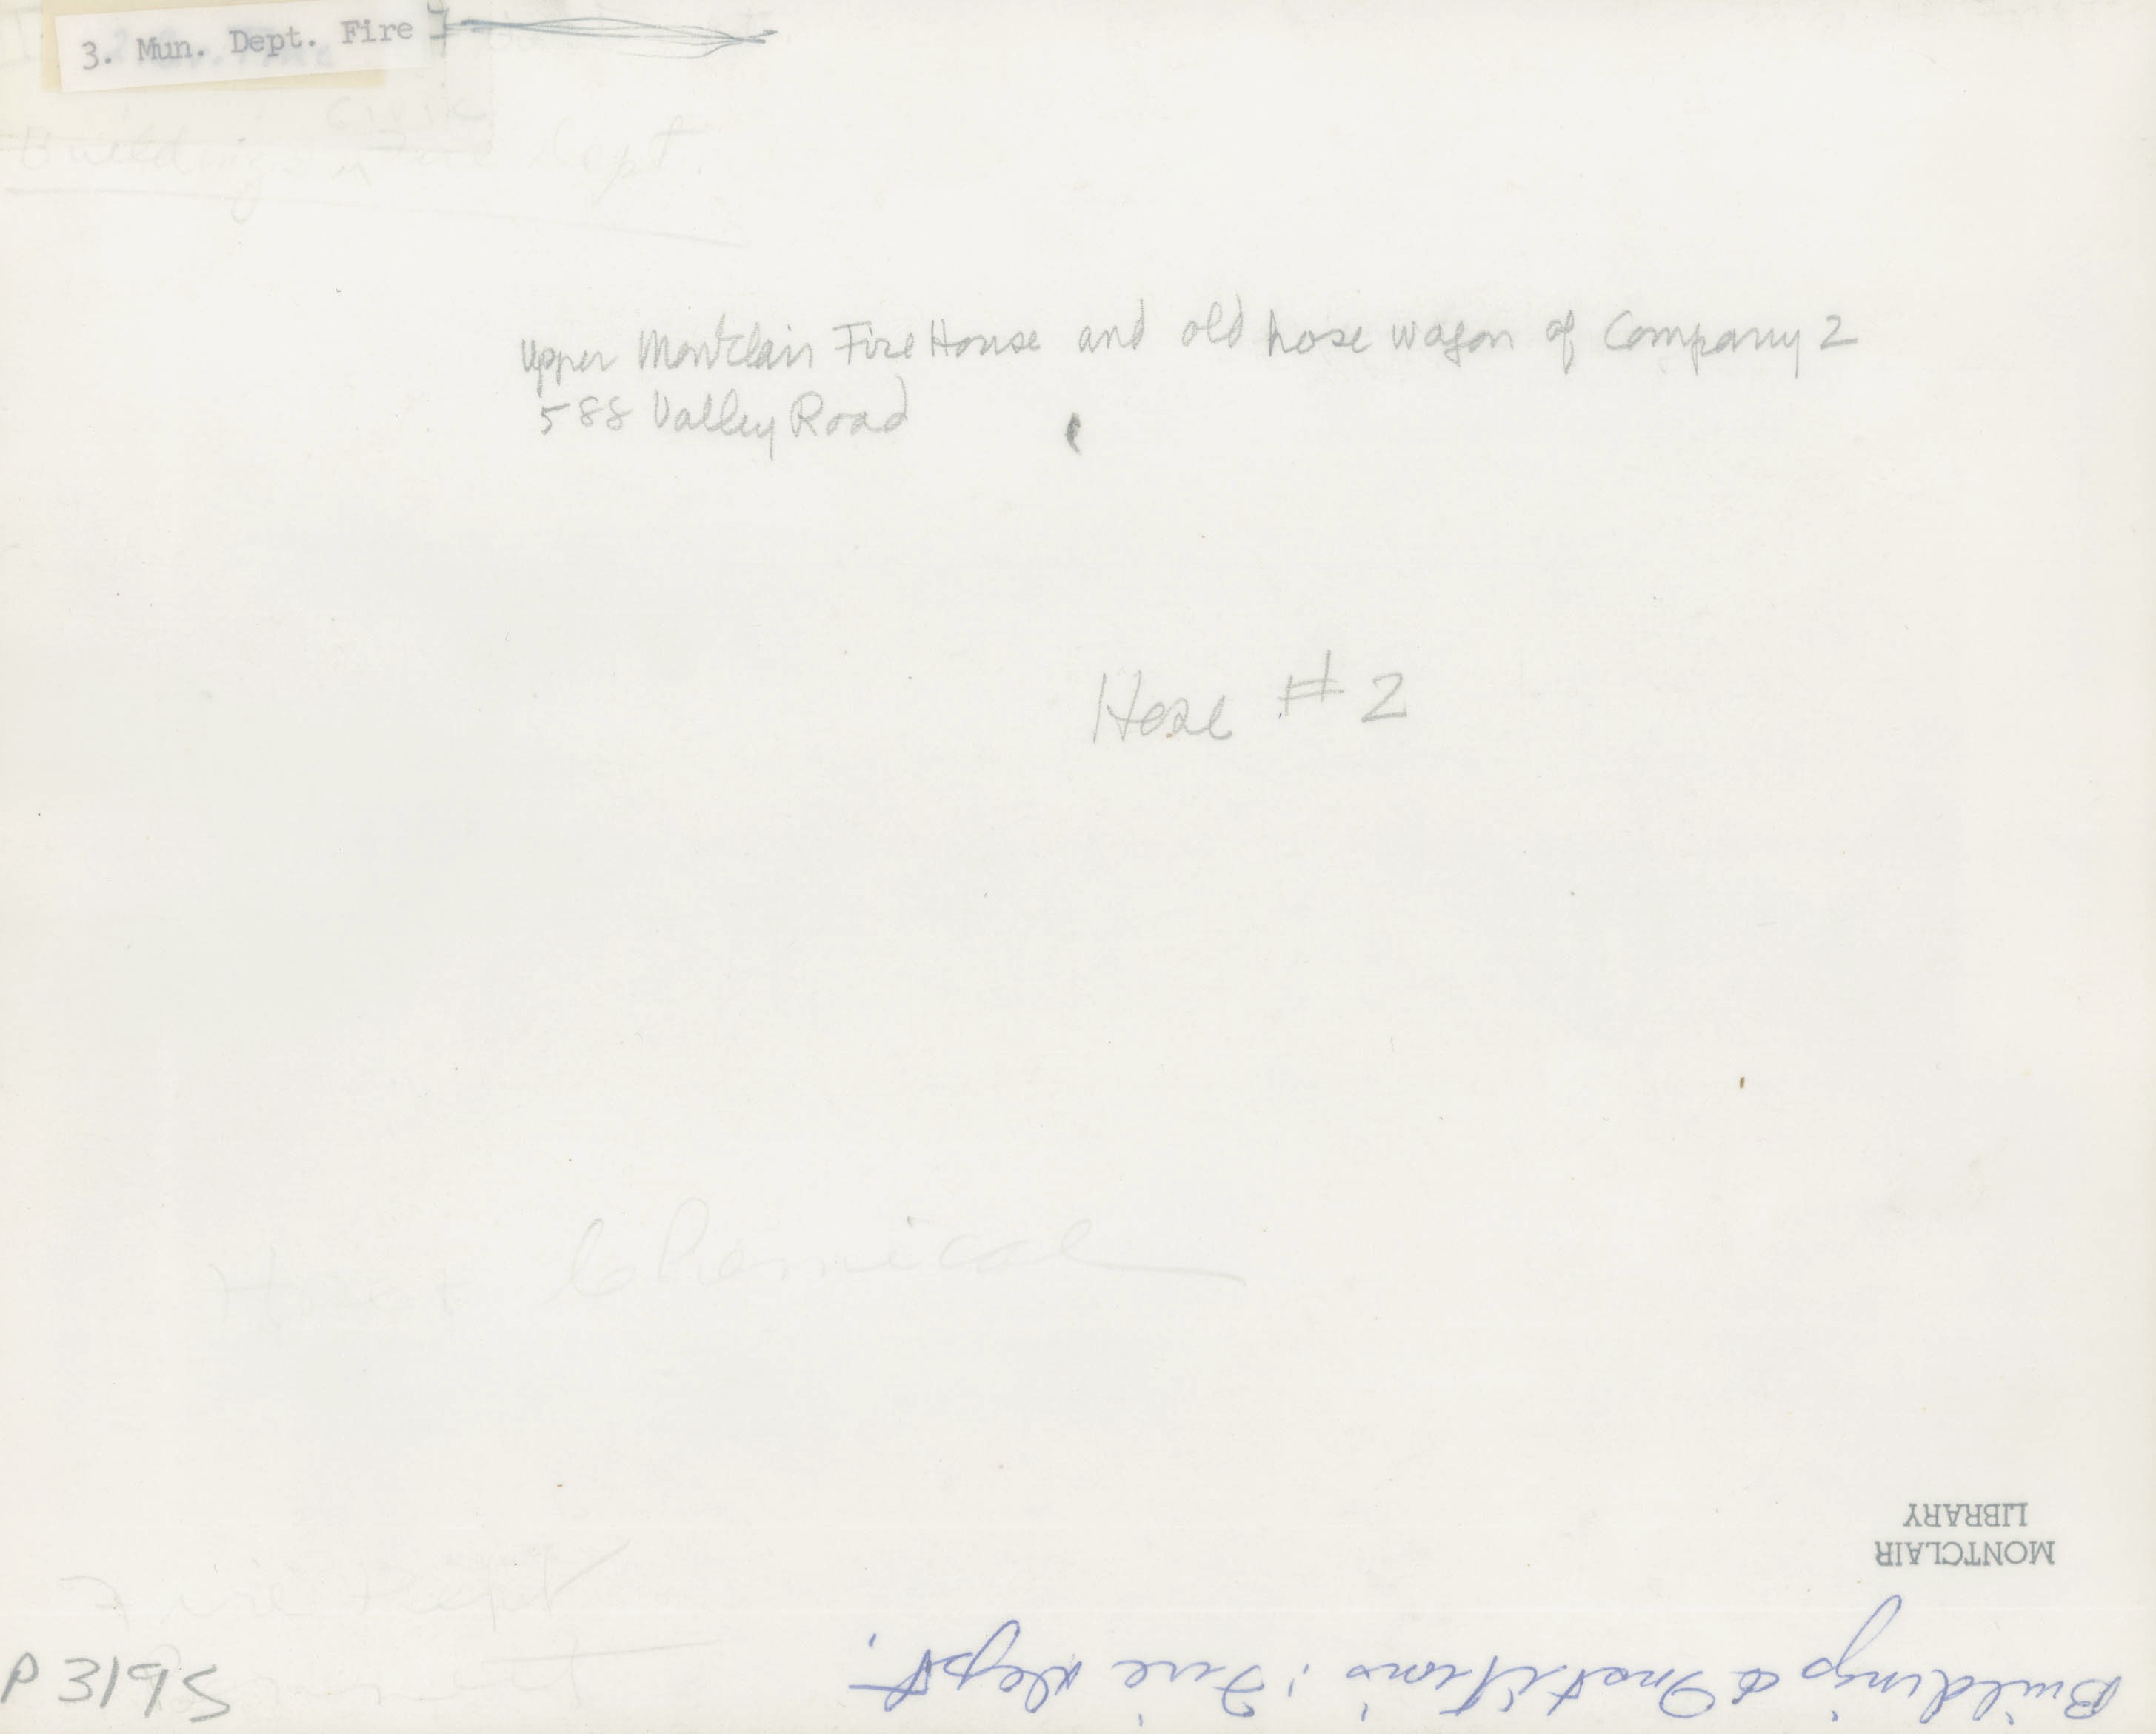 3. Mun. Dept. Fire
Civic
Buildings Fire Dept.
Upper Montclair Fire House and old hose wagon of Company 2
588 Valley Road
Hose # 2
Hose + Chemical
Fire Dept
P 3195
MONTCLAIR
LIBRARY
Buildings & Institutions: Fire Dept.